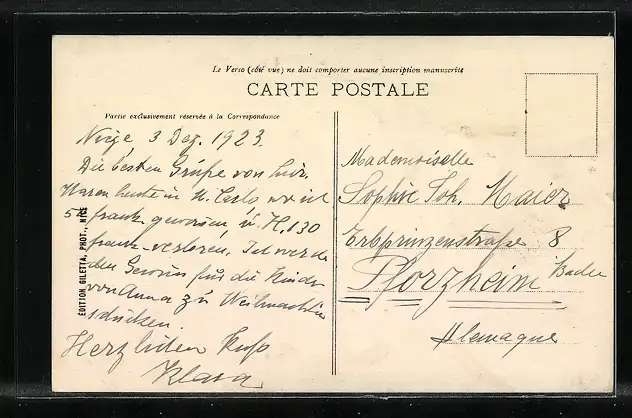 Le Verso (côté vue) ne doit comporter aucune inscription manuscrite
CARTE POSTALE
Partie exclusivement réservée à la Correspondance
EDITION GILETTA, PHOT., NICE
3 Dez. 1923.
Die besten Grüße von hier.
Waren heute in M. Carlo, wo ich
5 frank gewonnen, u. H. 130
frank verloren. Ich werde
den Gewinn für die Kinder
von Anna zu Weihnachten
schicken.
Herzlichen Kuß
Klara
Mademoiselle
Sophie Joh. Maier
Erbprinzenstraße 8
Pforzheim Baden
Allemagne